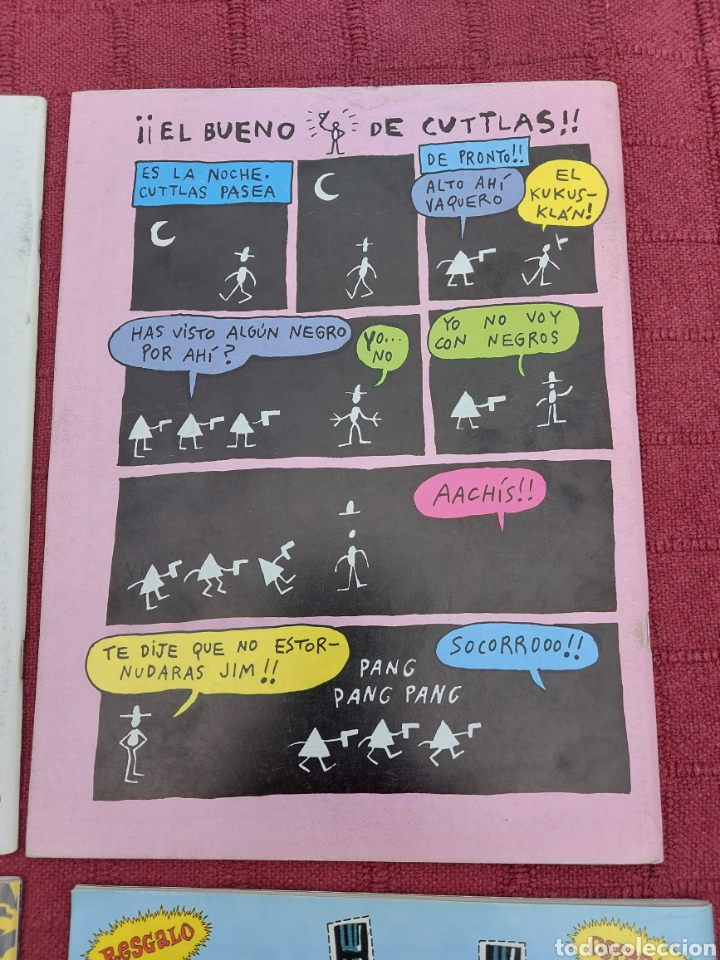 ¡¡EL BUENO DE CUTTLAS!!
ES LA NOCHE.
CUTTLAS PASEA
DE PRONTO!!
ALTO AHÍ
VAQUERO
EL
KUKUS-
KLÁN!
HAS VISTO ALGÚN NEGRO
POR AHÍ?
YO...
NO
YO NO VOY
CON NEGROS
AACHÍS!!
TE DIJE QUE NO ESTOR-
NUDARAS JIM!!
PANG
PANG PANG
SOCORROOO!!
RESGALO
todocoleccion